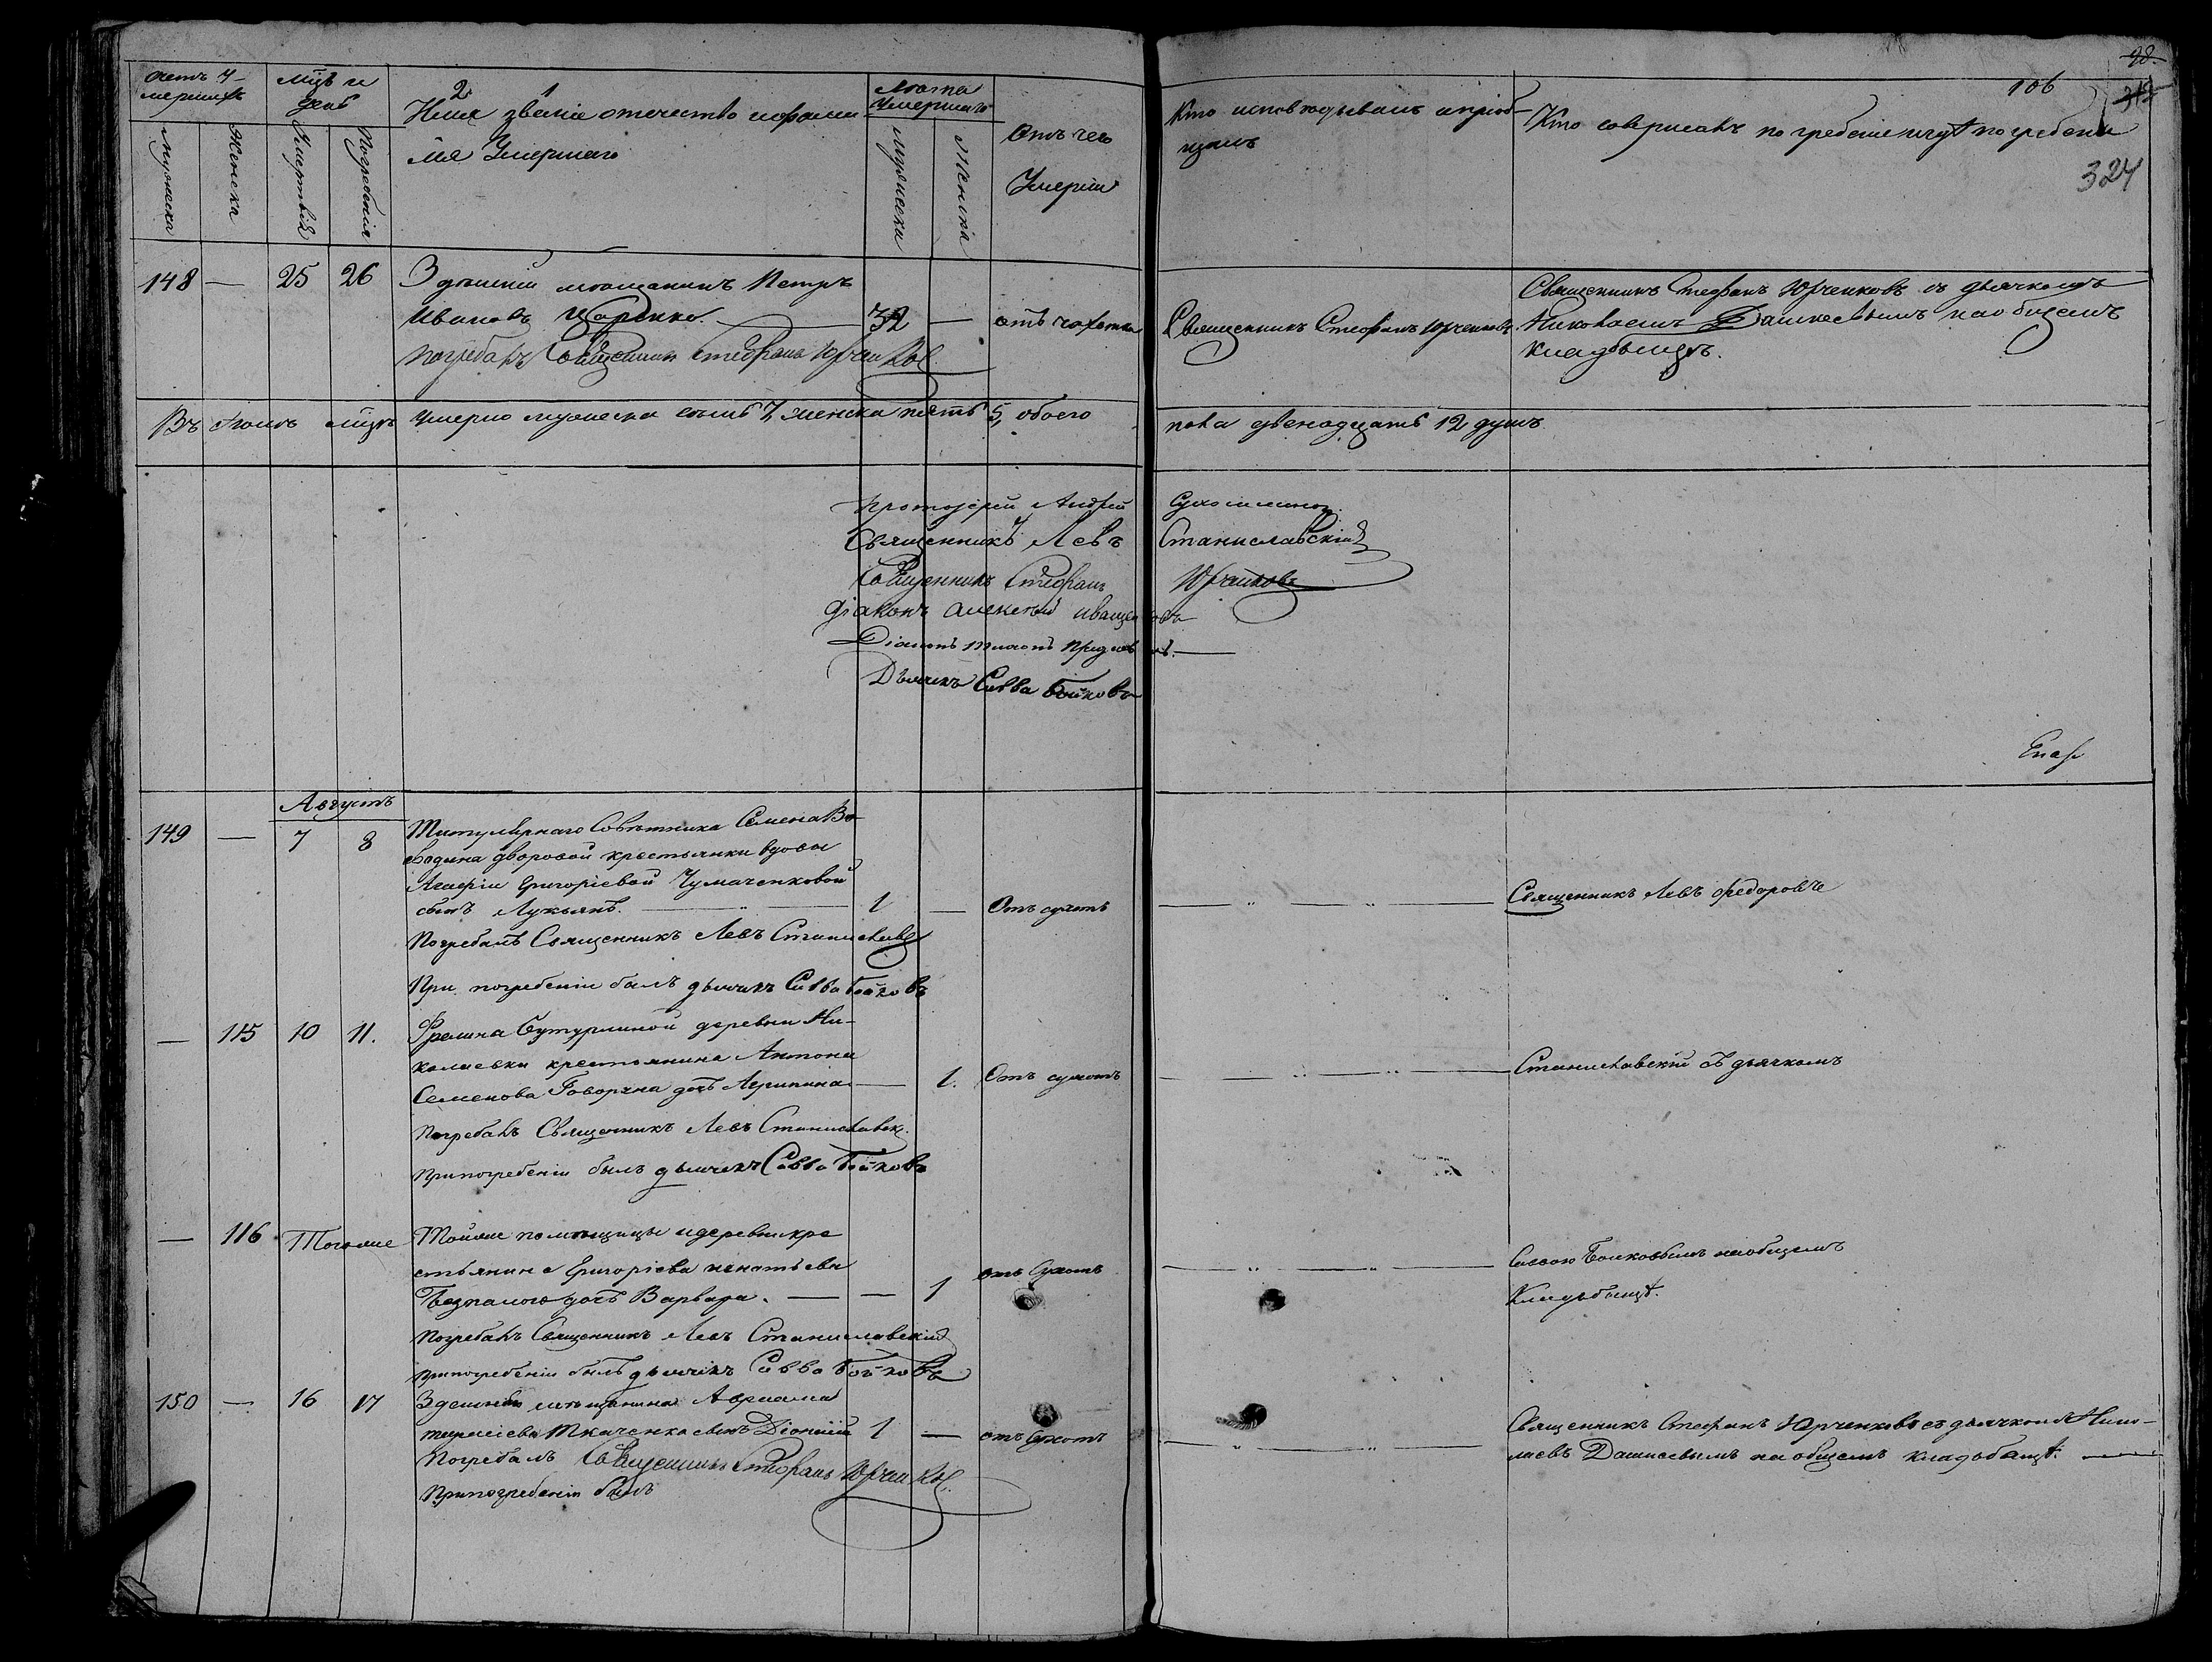 98.
106
324
Счетъ у-
мершихъ
Мужеска
Женска
Мцъ и
день
Смерти
Погребенія
Имя званіе отечество и фами-
лія Умершаго
Лѣта
Умершаго
Мужеска
Женска
Отъ чего
Умеръ
Кто исповѣдывалъ и пріоб-
щалъ
Кто совершалъ погребеніе и гдѣ погребены
148 — 25 26 Здѣшній мѣщанинъ Петръ
Ивановъ Царенко. — 32 — отъ чахотки
Погребалъ Священникъ Стефанъ Юрченковъ
Священникъ Стефанъ Юрченковъ
Священникъ Стефанъ Юрченковъ съ дьячкомъ
Николаемъ Дашкевымъ на общемъ
кладбищѣ.
Въ томъ мцѣ умерло мужеска семь 7, женска пять 5, обоего пола двенадцать 12 душъ
Протоіерей Андрей
Священникъ Левъ Станиславскій
Священникъ Стефанъ Юрченковъ
Діаконъ Алексей Иващенковъ
Діаконъ
Дьячекъ Савва Бойковъ
Августъ
149 — 7 8 Титулярнаго Совѣтника Семена Во-
еводина дворовой крестьянки вдовы
Агафіи Григоріевой Чумаченковой
сынъ Лукьянъ. — 1 — Отъ сухотъ
Погребалъ Священникъ Левъ Станиславск
При погребеніи былъ дьячекъ Савва Бойковъ
Священникъ Левъ Федоровъ
— 115 10 11. Фрелина Бутурлиной деревни Ни-
колаевки крестьянина Антона
Семенова Говоруна дочь Агрипина — 1. Отъ сухотъ
Погребалъ Священникъ Левъ Станиславск.
При погребеніи былъ дьячекъ Савва Бойковъ
Станиславскій съ дьячкомъ
— 116 Того же Той же помѣщицы и деревни кре
стьянина Григорія Игнатьева
Безпалого дочь Варвара. — — 1 отъ Сухотъ
Погребалъ Священникъ Левъ Станиславскій
При погребеніи былъ дьячекъ Савва Бойковъ
Саввою Бойковымъ на общемъ
Кладбищѣ.
150 — 16 17 Здешняго мѣщанина Авраама
Тарасіева Ткаченка сынъ Діонисій 1 — отъ Сухотъ
Погребалъ Священникъ Стефанъ Юрченковъ
При погребеніи былъ
Священникъ Стефанъ Юрченковъ съ дьячкомъ Нико-
лаевъ Дашкевымъ на общемъ кладбищѣ. —